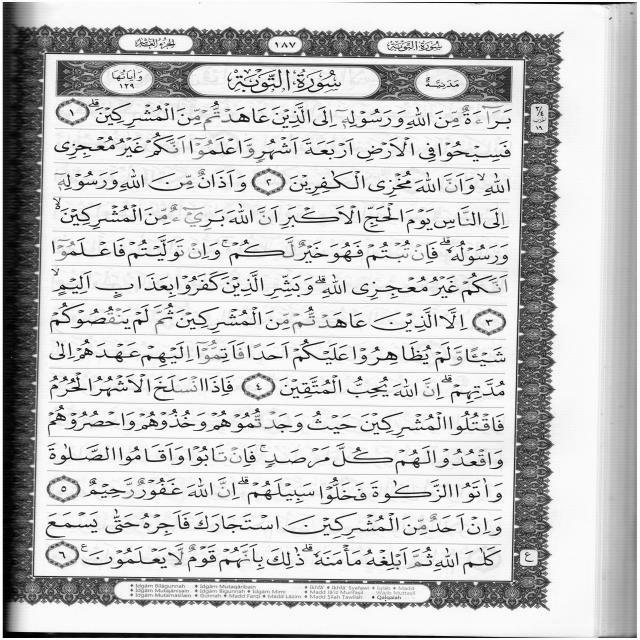 سُورَةُ التَّوْبَةِ
١٨٧
الجزء العاشر
مَدَنِيَّةٌ
سُورَةُ التَّوْبَةِ
وَاٰيَاتُهَا ١٢٩
بَرَاۤءَةٌ مِّنَ اللّٰهِ وَرَسُوْلِهٖٓ اِلَى الَّذِيْنَ عَاهَدْتُّمْ مِّنَ الْمُشْرِكِيْنَۗ ١
فَسِيْحُوْا فِى الْاَرْضِ اَرْبَعَةَ اَشْهُرٍ وَّاعْلَمُوْٓا اَنَّكُمْ غَيْرُ مُعْجِزِى
اللّٰهِ ۙوَاَنَّ اللّٰهَ مُخْزِى الْكٰفِرِيْنَ ٢ وَاَذَانٌ مِّنَ اللّٰهِ وَرَسُوْلِهٖٓ
اِلَى النَّاسِ يَوْمَ الْحَجِّ الْاَكْبَرِ اَنَّ اللّٰهَ بَرِيْۤءٌ مِّنَ الْمُشْرِكِيْنَ ۙ
وَرَسُوْلُهٗ ۗفَاِنْ تُبْتُمْ فَهُوَ خَيْرٌ لَّكُمْۚ وَاِنْ تَوَلَّيْتُمْ فَاعْلَمُوْٓا
اَنَّكُمْ غَيْرُ مُعْجِزِى اللّٰهِ ۗوَبَشِّرِ الَّذِيْنَ كَفَرُوْا بِعَذَابٍ اَلِيْمٍۙ
٣ اِلَّا الَّذِيْنَ عَاهَدْتُّمْ مِّنَ الْمُشْرِكِيْنَ ثُمَّ لَمْ يَنْقُصُوْكُمْ
شَيْـًٔا وَّلَمْ يُظَاهِرُوْا عَلَيْكُمْ اَحَدًا فَاَتِمُّوْٓا اِلَيْهِمْ عَهْدَهُمْ اِلٰى
مُدَّتِهِمْۗ اِنَّ اللّٰهَ يُحِبُّ الْمُتَّقِيْنَ ٤ فَاِذَا انْسَلَخَ الْاَشْهُرُ الْحُرُمُ
فَاقْتُلُوا الْمُشْرِكِيْنَ حَيْثُ وَجَدْتُّمُوْهُمْ وَخُذُوْهُمْ وَاحْصُرُوْهُمْ
وَاقْعُدُوْا لَهُمْ كُلَّ مَرْصَدٍۚ فَاِنْ تَابُوْا وَاَقَامُوا الصَّلٰوةَ
وَاٰتَوُا الزَّكٰوةَ فَخَلُّوْا سَبِيْلَهُمْۗ اِنَّ اللّٰهَ غَفُوْرٌ رَّحِيْمٌ ٥
وَاِنْ اَحَدٌ مِّنَ الْمُشْرِكِيْنَ اسْتَجَارَكَ فَاَجِرْهُ حَتّٰى يَسْمَعَ
كَلٰمَ اللّٰهِ ثُمَّ اَبْلِغْهُ مَأْمَنَهٗ ۗذٰلِكَ بِاَنَّهُمْ قَوْمٌ لَّا يَعْلَمُوْنَ ۚ ٦
ع
Idgam Bilagunnah Idgam Mutaqaribain
Idgam Mutajanisain Idgam Bigunnah Idgam Mimi
Idgam Mutamasilain Gunnah Madd Farqi Madd Lazim Madd Silah Tawilah Qalqalah